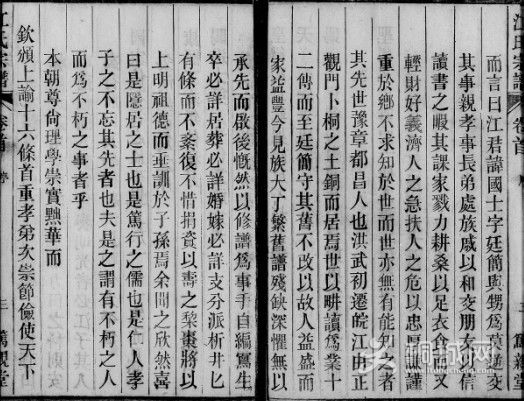 江氏宗譜
卷首
篤親堂
而言曰江君諱國士字廷簡與甥爲莫逆交
其事親孝事長弟處族戚以和交朋友以信
讀書之暇其課家戮力耕桑以足衣食以文
輕財好義濟人之急扶人之危以忠厚謹
重於鄉不求知於世而世亦無有能知之者
其先世豫章都昌人也洪武初遷皖江中正
觀門卜桐之土銅而居焉世以耕讀爲業十
二傳而至廷簡守其舊不改以故人益盛而
家益豐今見族大丁繁舊譜殘缺深懼無以
承先而啟後慨然以修譜爲事手自編寫生
卒必詳居葬必詳婚嫁必詳支分派析井匕
有條而不紊復不惜捐資以壽之棃棗將以
上明祖德而垂訓於子孫焉余聞之欣然喜
曰是隱居之士也是篤行之儒也是仁人孝
子之不忘其先者也夫是之謂有不朽之人
而爲不朽之事者乎
本朝尊尙理學崇實黜華而
欽頒上諭十六條首重孝弟次崇節儉使天下
江氏宗譜
卷首
三
篤親堂